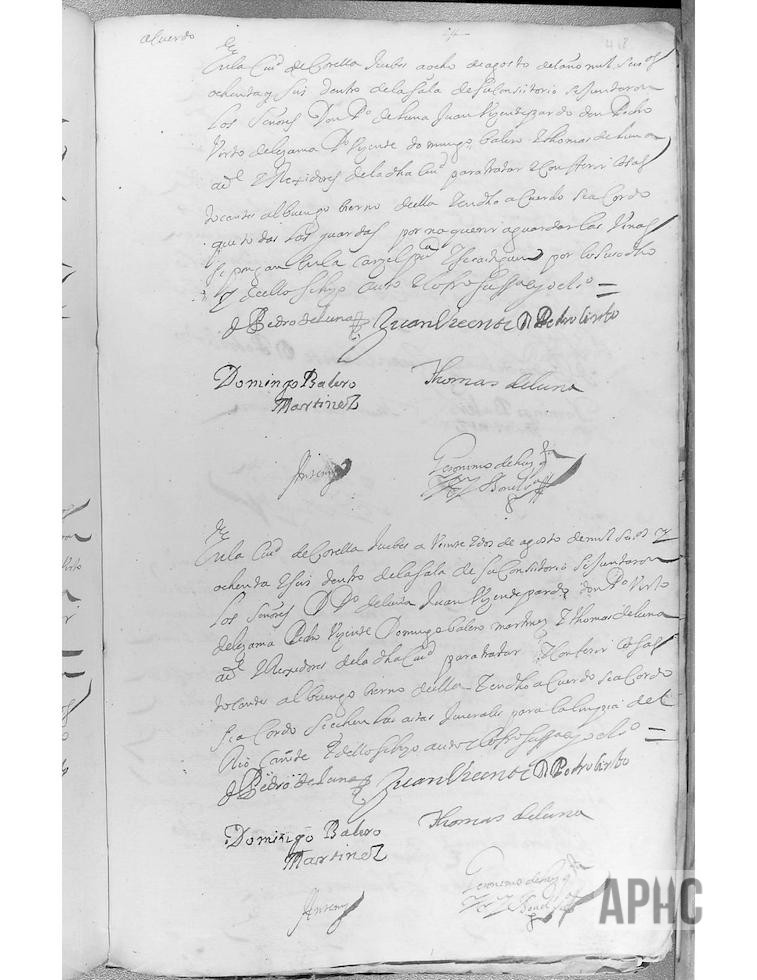 acuerdo
En la Ciud de Corella Juebes a ocho de agosto del año mil seisos
ochenta y seis dentro de la sala de su Consistorio se Juntaron
Los Señores Don Po de Luna Juan Vizente pardo don Pedro
Virto de lezama Po Vizente domingo balero Thomas de luna
aldes Y Rexidores de la dha Ciud para tratar Y Conferir Cosas
tocantes al buen go bierno de ella Y en dho a Cuerdo se a Cordo
que todas Las guardas por no querer aguardar las Vinas
se pongan En la Carzel por lo suso dho
Y de ello se hizo auto
D Pedro de Luna Juan Vicente D Pedro Virto
Domingo Balero Thomas deluna
Martinez
Ante my Geronimo de
En la Ciud de Corella Juebes a Veinte Y dos de agosto de mil seisos y
ochenta Y seis dentro de la sala de su Consistorio se Juntaron
Los Señores D Po de luna Juan Vizente pardo don Po Virto
de lezama Pedro Vizente Domingo balero martinez Y thomas de luna
aldes Y Rexidores de la dha Ciud para tratar Y Conferir Cosas
tocantes al buen go bierno de ella Y en dho a Cuerdo se a Cordo
se a Cordo se echen las para la limpia del
Rio Cañete Y de ello se hizo auto
D Pedro de Luna Juan Vicente D Pedro Virto
Domingo Balero Thomas deluna
Martinez
Ante my Geronimo de
APHC